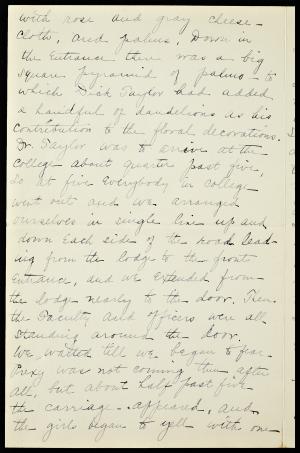 with rose and gray cheese-
cloth, and palms, Down in
the Entrance there was a big
square pyramid of palms - to
which Dick Taylor had added
a handful of dandelions as his
contribution to the floral decorations.
Dr. Taylor was to arrive at the
College about quarter past five,
So at five Everybody in college
went out and we arranged
ourselves in single line up and
down Each side of the road lead-
ing from the lodge to the front
Entrance, and we Extended from
the lodge nearly to the door. Then
the Faculty and officers were all
standing around the door.
We waited till we began to fear
Prexy was not coming then after
all, but about half past five
the carriage appeared, and
the girls began to yell with one